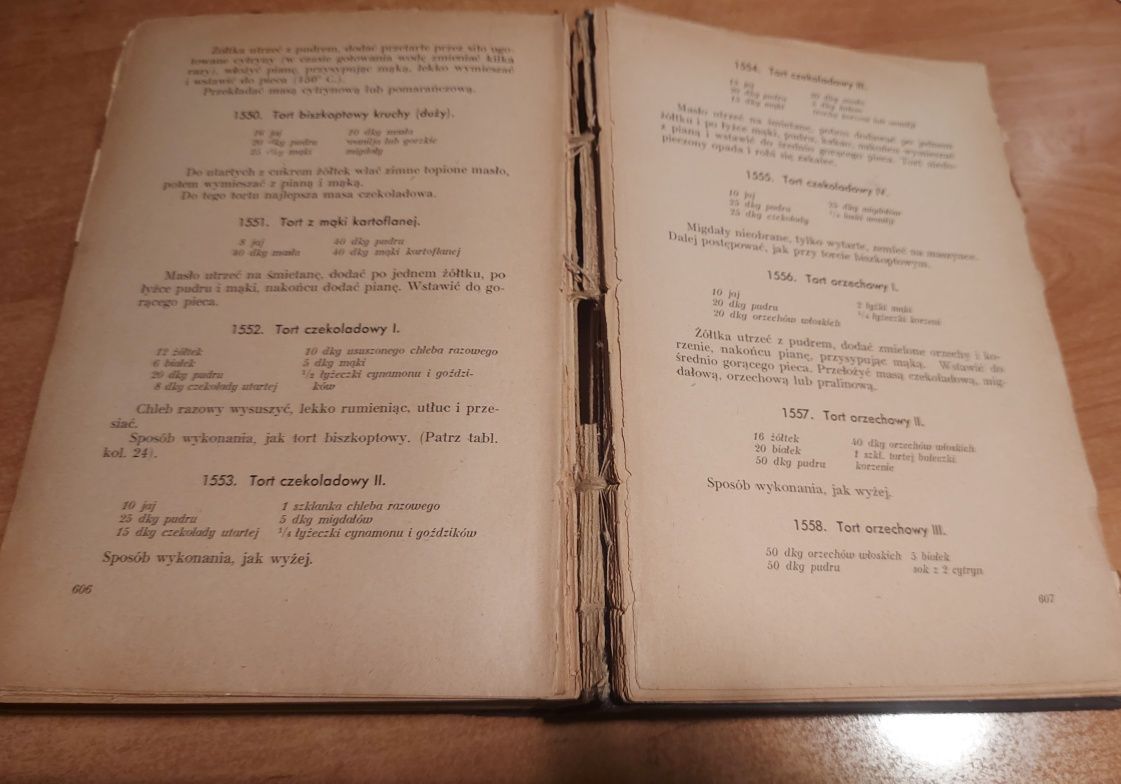 Żółtka utrzeć z pudrem, dodać przetarte przez sito ugo-
towane cytryny (w czasie gotowania wodę zmieniać kilka
razy), włożyć pianę, przysypując mąką, lekko wymieszać
i wstawić do pieca (150° C.).
Przekładać masą cytrynową lub pomarańczową.
1550. Tort biszkoptowy kruchy (duży).
16 jaj
20 dkg pudru
25 dkg mąki
10 dkg masła
wanilja lub gorzkie
migdały
Do utartych z cukrem żółtek wlać zimne topione masło,
potem wymieszać z pianą i mąką.
Do tego tortu najlepsza masa czekoladowa.
1551. Tort z mąki kartoflanej.
8 jaj
40 dkg masła
40 dkg pudru
40 dkg mąki kartoflanej
Masło utrzeć na śmietanę, dodać po jednem żółtku, po
łyżce pudru i mąki, nakońcu dodać pianę. Wstawić do go-
rącego pieca.
1552. Tort czekoladowy I.
12 żółtek
6 białek
20 dkg pudru
8 dkg czekolady utartej
10 dkg ususzonego chleba razowego
5 dkg mąki
½ łyżeczki cynamonu i goździ-
ków
Chleb razowy wysuszyć, lekko rumieniąc, utłuc i prze-
siać.
Sposób wykonania, jak tort biszkoptowy. (Patrz tabl.
kol. 24).
1553. Tort czekoladowy II.
10 jaj
25 dkg pudru
15 dkg czekolady utartej
1 szklanka chleba razowego
5 dkg migdałów
¼ łyżeczki cynamonu i goździków
Sposób wykonania, jak wyżej.
606
1554. Tort czekoladowy III.
jaj
dkg pudru
15 dkg mąki
20 dkg masła
dkg kakao
lub wanilji
Masło utrzeć na śmietanę, potem dodawać po jednem
żółtku i po łyżce mąki, pudru, kakao, nakońcu wymieszać
z pianą i wstawić do średnio gorącego pieca. Tort niedo-
pieczony opada i robi się zakalec.
1555. Tort czekoladowy IV.
10 jaj
25 dkg pudru
25 dkg czekolady
25 dkg migdałów
½ laski wanilji
Migdały nieobrane, tylko wytarte, zemleć na maszynce.
Dalej postępować, jak przy torcie biszkoptowym.
1556. Tort orzechowy I.
10 jaj
20 dkg pudru
20 dkg orzechów włoskich
2 łyżki mąki
¼ łyżeczki korzeni
Żółtka utrzeć z pudrem, dodać zmielone orzechy i ko-
rzenie, nakońcu pianę, przysypując mąką. Wstawić do
średnio gorącego pieca. Przełożyć masą czekoladową, mig-
dałową, orzechową lub pralinową.
1557. Tort orzechowy II.
16 żółtek
20 białek
50 dkg pudru
40 dkg orzechów włoskich
1 szkl. tartej bułeczki
korzenie
Sposób wykonania, jak wyżej.
1558. Tort orzechowy III.
50 dkg orzechów włoskich
50 dkg pudru
5 białek
sok z 2 cytryn
607